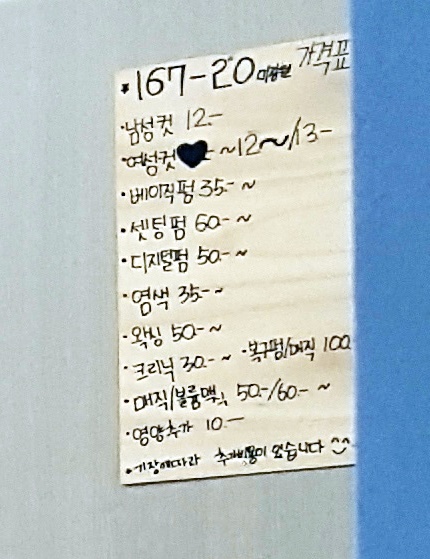 * 167-20 미용원 가격표
·남성컷 12.-
·여성컷 ♥- ~12~/13-
·베이직펌 35.- ~
·셋팅펌 60.- ~
·디지털펌 50.- ~
·염색 35.- ~
·왁싱 50.- ~
·크리닉 30.- ~ ·복구펌/매직 100
·매직/볼륨매직 50.-/60.- ~
·영양추가 10.-
·기장에따라 추가비용이 있습니다 ^^